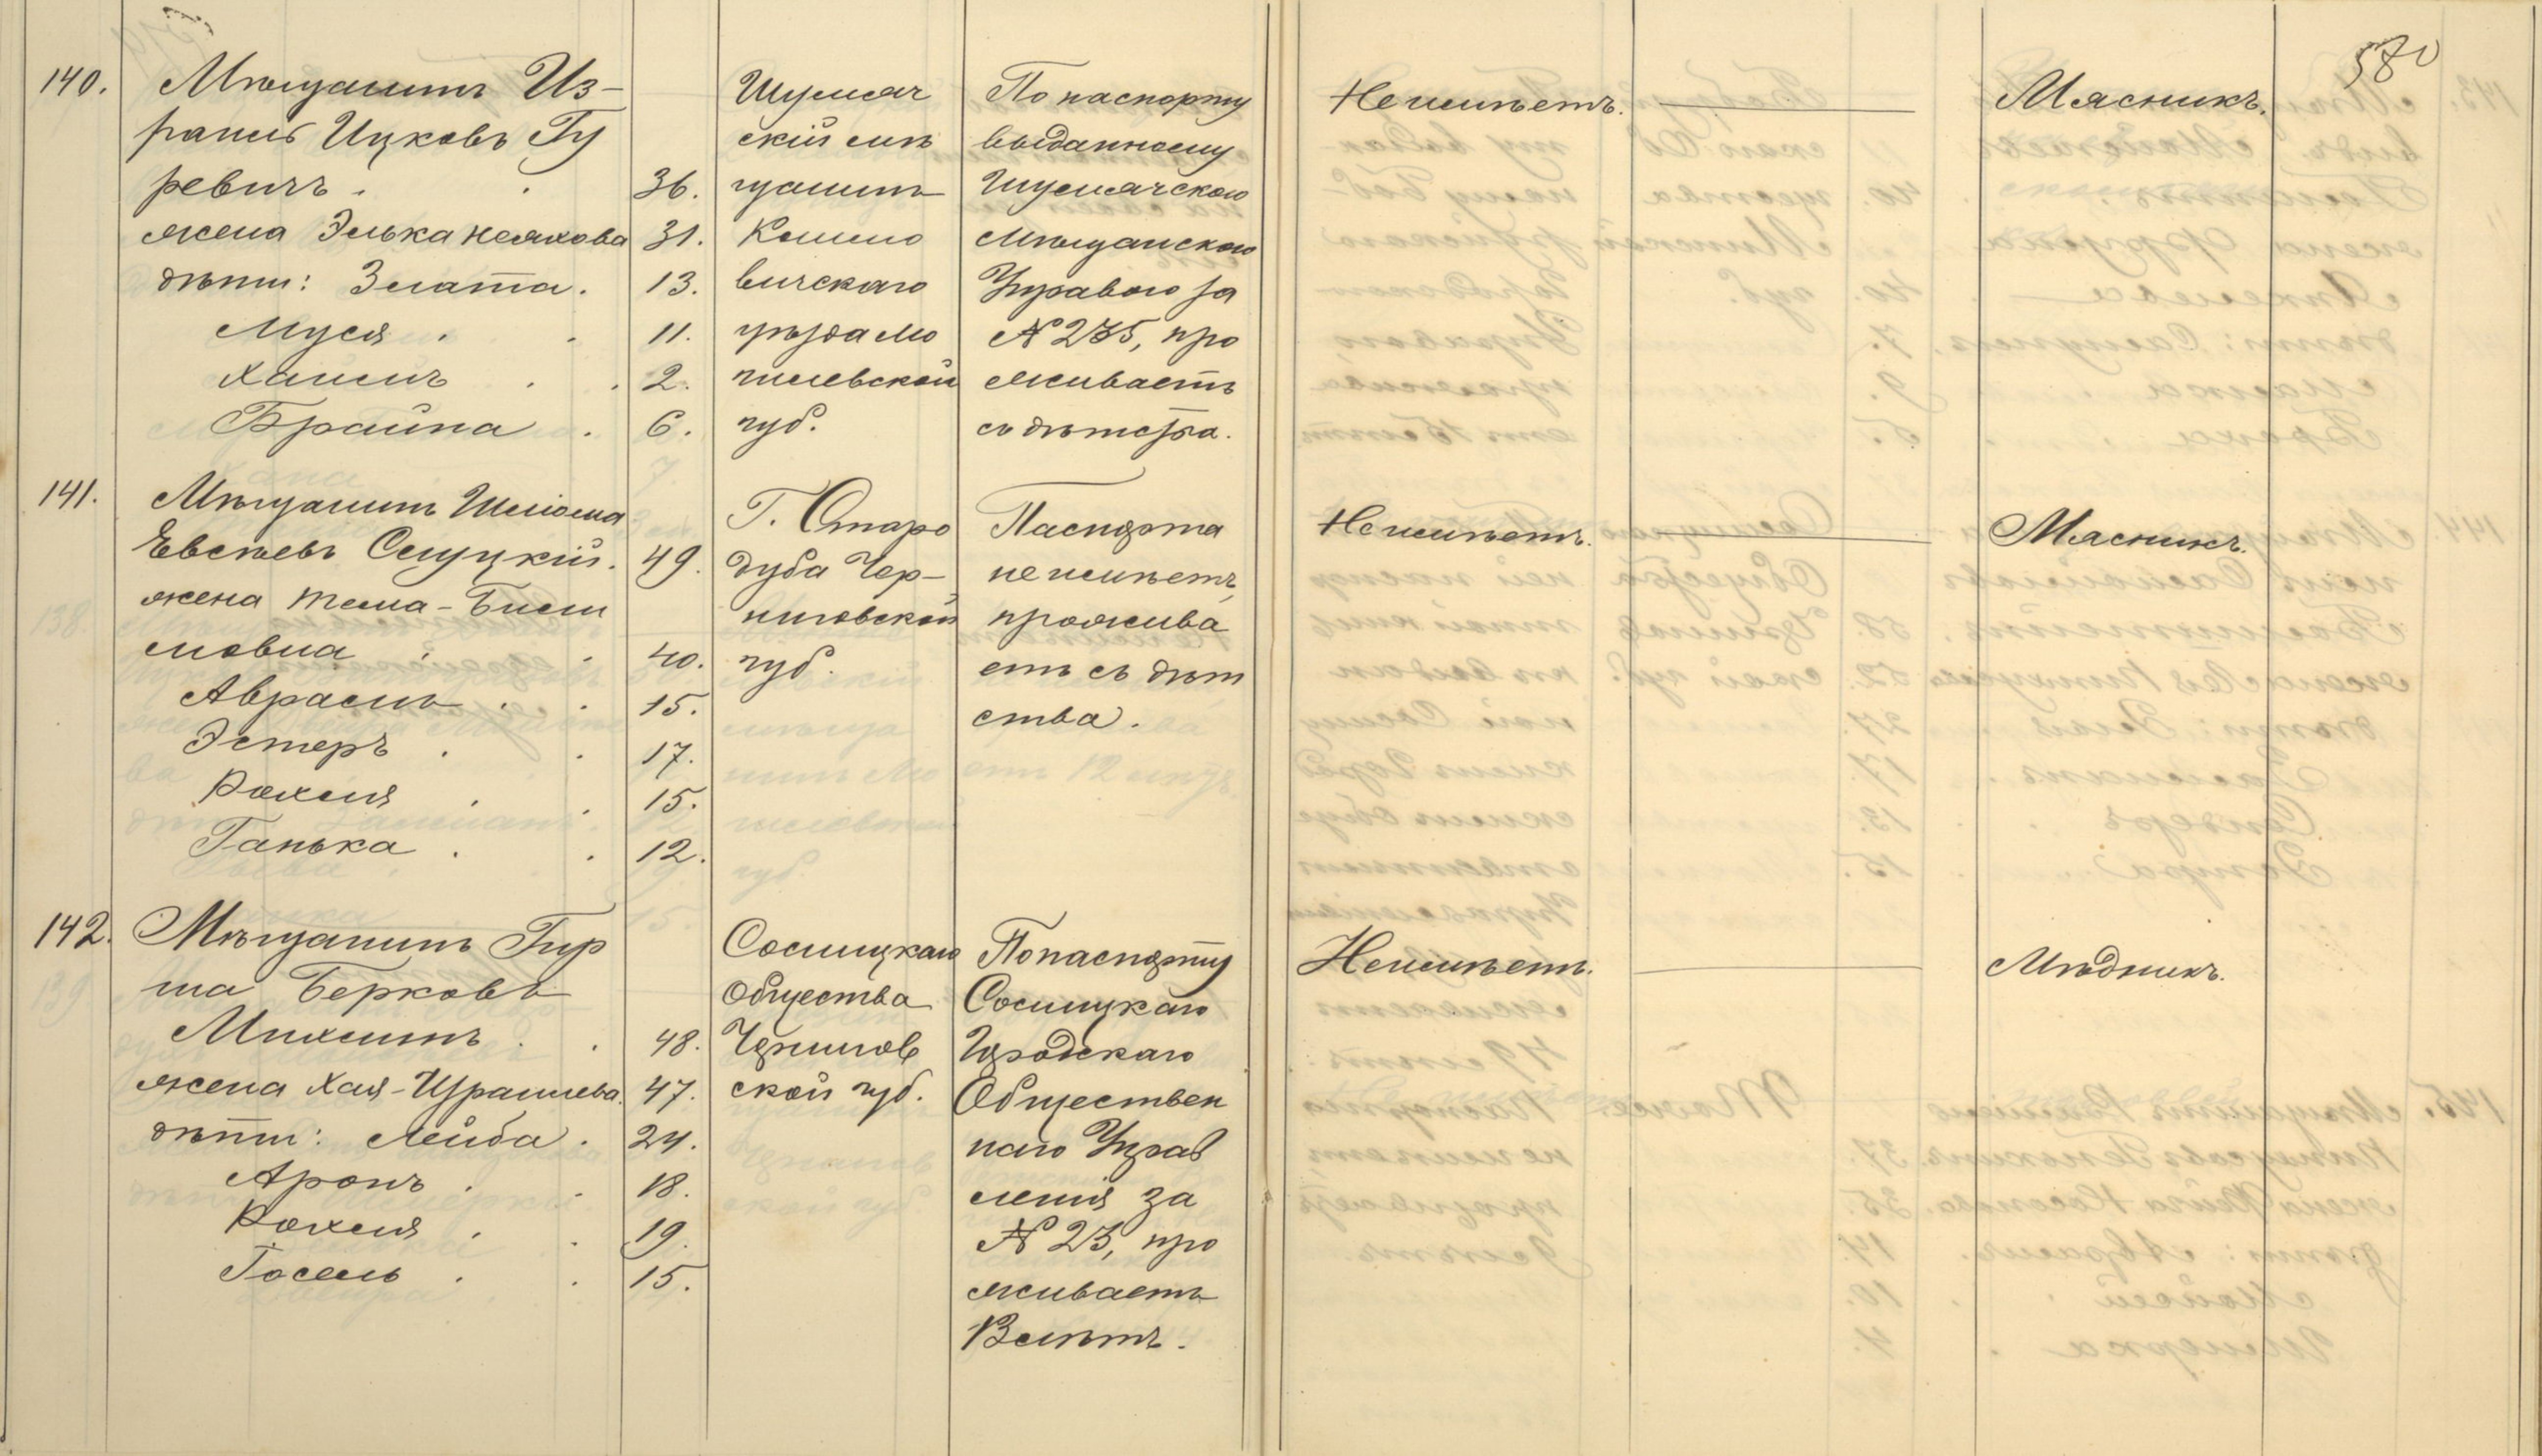 580
140.
Мѣщанинъ Из-
раиль Ицковъ Гу
ревичъ . . 36.
жена Элька Неяхова 31.
дѣти: Злата . 13.
Муся . . 11.
Хаимъ . . 2.
Брайна . 6.
Шумяч
скій мѣ
щанинъ
Климо
вичскаго
уѣзда Мо
гилевской
губ.
По паспорту
выданному
Шумячскою
Мѣщанскою
Управою за
№ 235, про
живаетъ
съ дѣтства.
Не имѣетъ.
Мясникъ.
141.
Мѣщанинъ Шлiома
Евсѣевъ Слуцкій. 49.
жена Тема-Биси
мовна . . 40.
Абрамъ . . 15.
Эстеръ . . 17.
Рохля . . 15.
Ганька . . 12.
Г. Старо
дуба Чер-
ниговской
губ.
Паспорта
не имѣетъ,
прожива
етъ съ дѣт
ства.
Не имѣетъ.
Мясникъ.
142.
Мѣщанинъ Гир
ша Берковъ
Михлинъ . . 48.
жена Хая-Израилева. 47.
дѣти: Лейба . 24.
Аронъ . . 18.
Рохля . . 19.
Iосель . . 15.
Сосницкаго
Общества
Чернигов
ской губ.
По паспорту
Сосницкаго
Городскаго
Обществен
наго Управ
ленія за
№ 23, про
живаетъ
13 лѣтъ.
Не имѣетъ.
Мѣдникъ.